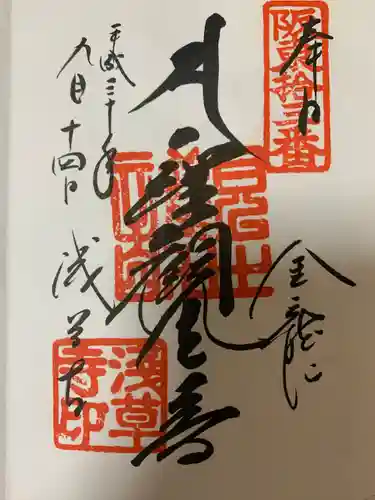 奉拝
阪東拾三番
金龍山
聖観世音
平成三十年
九月十四日
浅草寺
浅草寺印